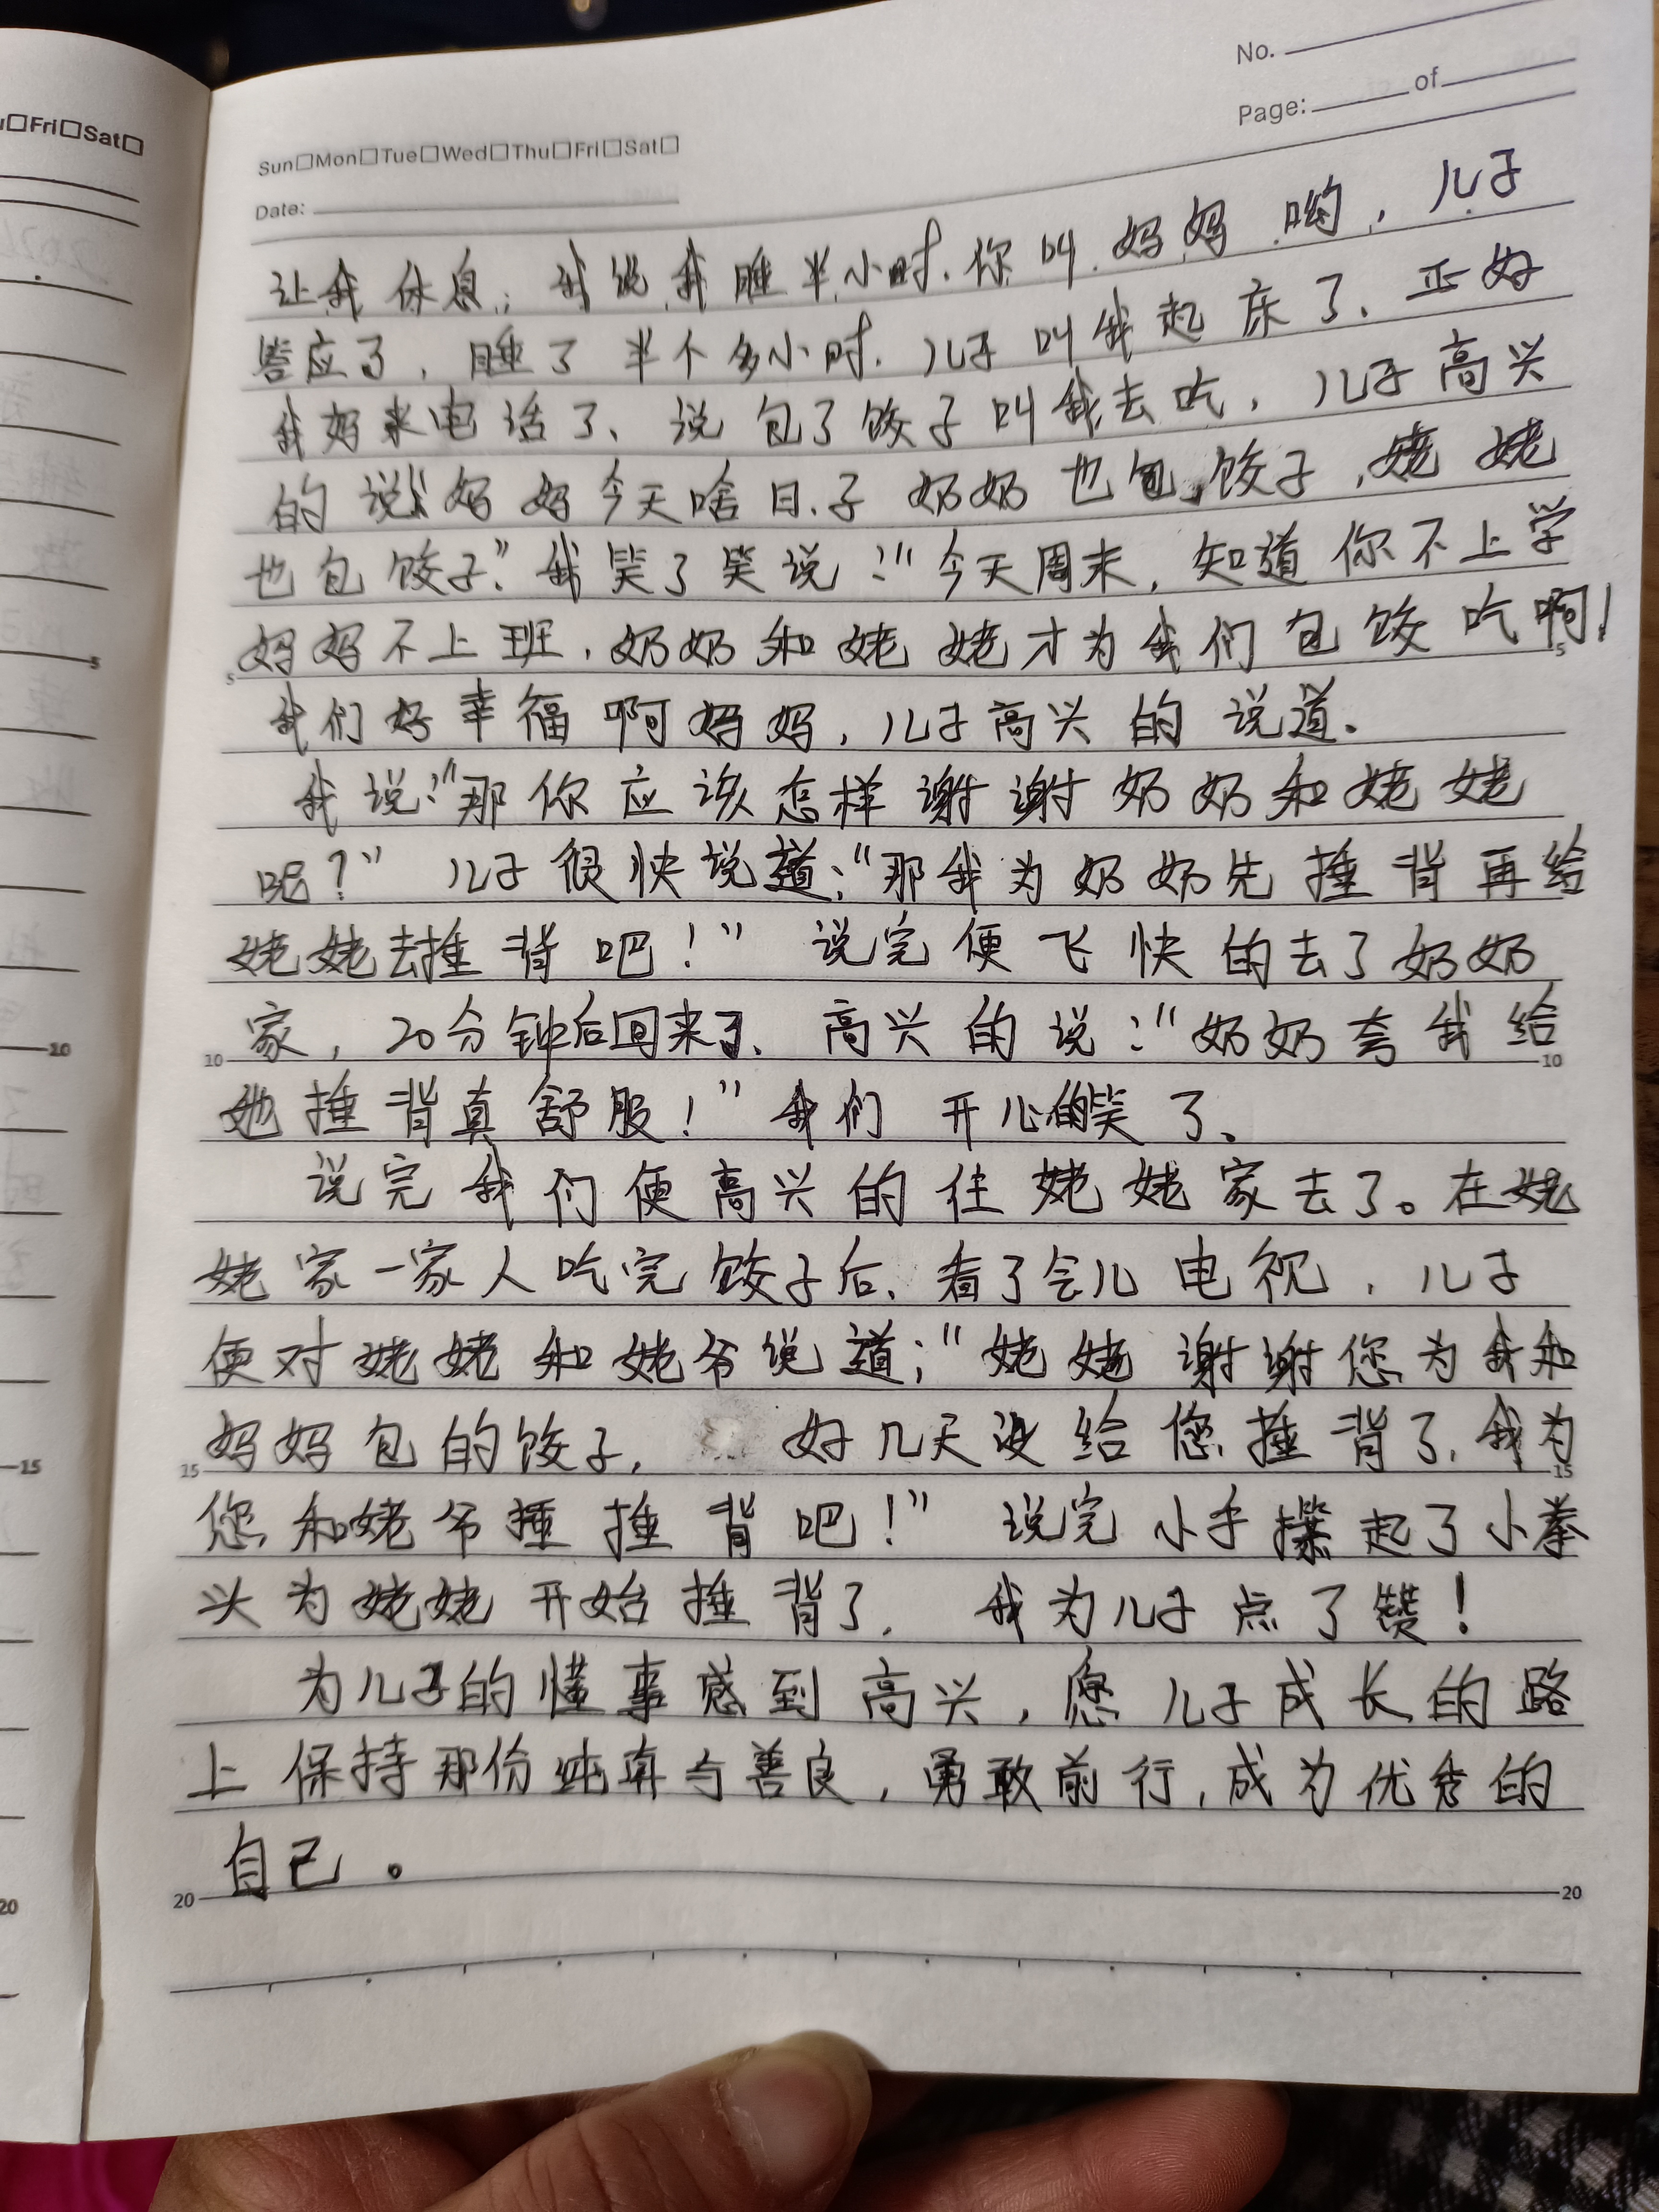 No.
Page: of
Sun□Mon□Tue□Wed□Thu□Fri□Sat□
Date:
u□Fri□Sat□
让我休息，我说我睡半小时.你叫妈妈哟，儿子
答应了，睡了半个多小时.儿子叫我起床了、正好
我妈来电话了、说包了饺子叫我去吃，儿子高兴
的说“妈妈今天啥日子奶奶也包饺子，姥姥
也包饺子”.我笑了笑说：“今天周末，知道你不上学
妈妈不上班，奶奶和姥姥才为我们包饺吃啊！
我们好幸福啊妈妈，儿子高兴的说道。
我说：“那你应该怎样谢谢奶奶和姥姥
呢？” 儿子很快说道：“那我为奶奶先捶背再给
姥姥去捶背吧！” 说完便飞快的去了奶奶
家，20分钟后回来了、高兴的说：“奶奶夸我给
她捶背真舒服！”我们开心的笑了。
说完我们便高兴的往姥姥家去了。在姥
姥家一家人吃完饺子后、看了会儿电视，儿子
便对姥姥和姥爷说道：“姥姥谢谢您为我和
妈妈包的饺子， 好几天没给您捶背了，我为
您和姥爷捶捶背吧！” 说完小手攥起了小拳
头为姥姥开始捶背了， 我为儿子点了赞！
为儿子的懂事感到高兴，愿儿子成长的路
上保持那份纯真与善良，勇敢前行，成为优秀的
自己。
5
5
10
10
15
15
20
20
5
10
15
20